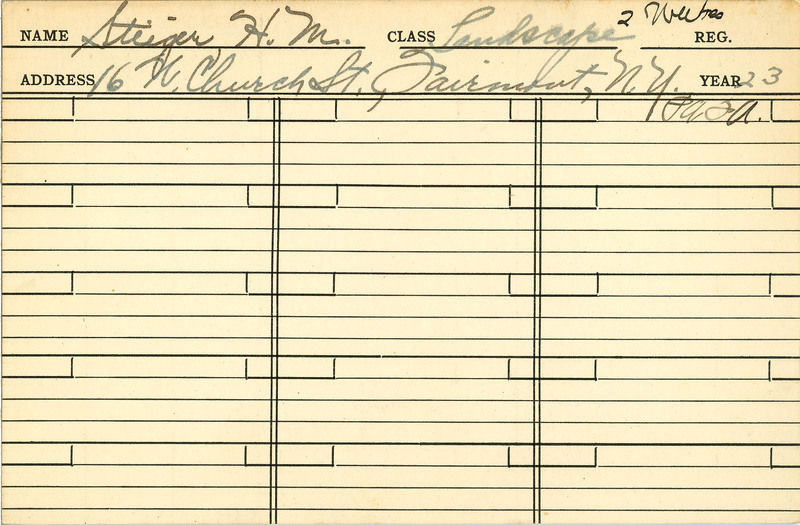 NAME Steiger, H. M. CLASS Landscape 2 Weeks REG.
ADDRESS 16 N. Church St., Fairmont, N.Y. YEAR 23